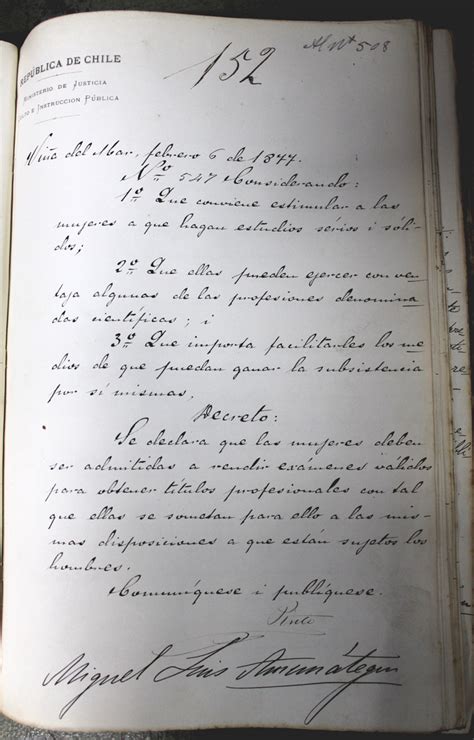 REPÚBLICA DE CHILE
MINISTERIO DE JUSTICIA
CULTO E INSTRUCCION PÚBLICA
152
Nº 508
Viña del Mar, febrero 6 de 1877.
Nº 547 Considerando:
1º Que conviene estimular a las
mujeres a que hagan estudios sérios i sóli-
dos;
2º Que ellas pueden ejercer con ven-
taja algunas de las profesiones denomina-
das científicas; i
3º Que importa facilitarles los me-
dios de que puedan ganar la subsistencia
por sí mismas,
Decreto:
Se declara que las mujeres deben
ser admitidas a rendir exámenes válidos
para obtener títulos profesionales con tal
que ellas se sometan para ello a las mis-
mas disposiciones a que estan sujetos los
hombres.
Comuníquese i publíquese.
Pinto
Miguel Luis Amunátegui